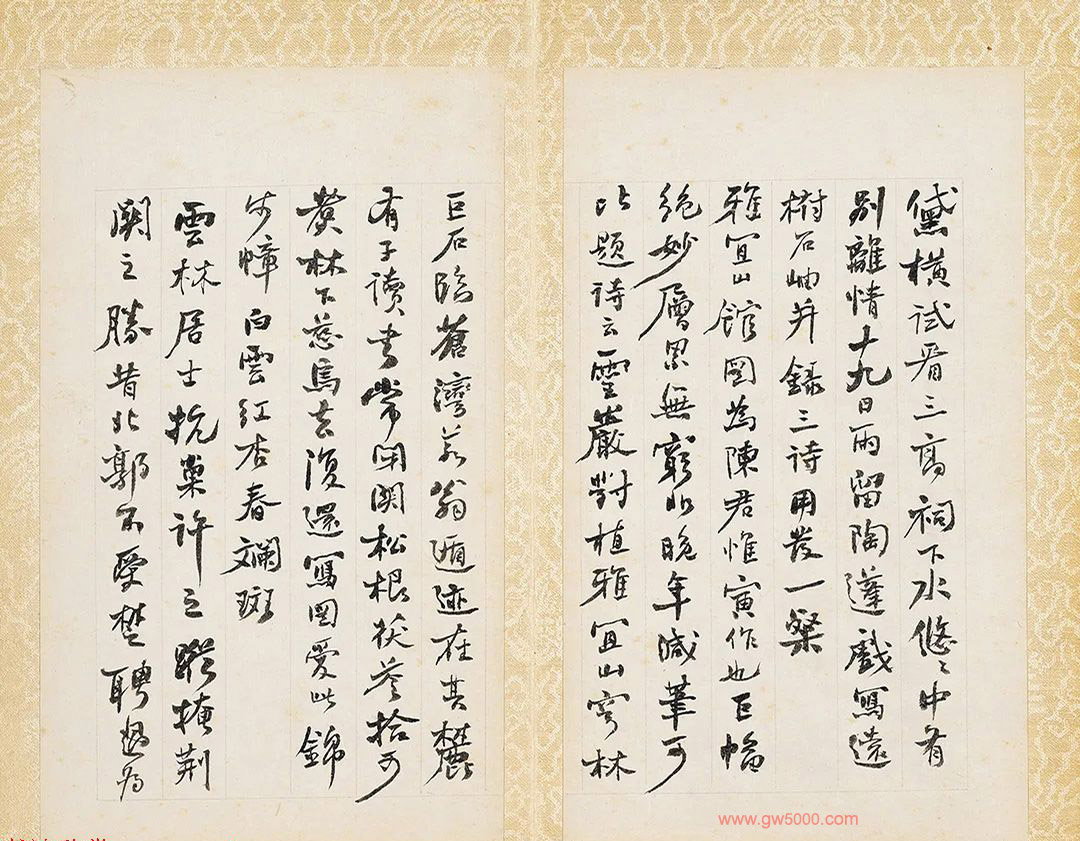 黛橫試看三高祠下水悠〻中有
別離情十九日雨留陶蓬戲寫遠
樹石岫并錄三詩用發一粲
雅宜山館圖為陳君惟寅作也巨幅
絕妙層累無窮非晚年減筆可
比題詩云靈巖對植雅宜山穹林
巨石臨蒼灣若翁遁迹在其麓
有子讀書常閉關松根茯苓拾可
煑林下慈烏去復還寫圖愛此錦
步幛白雲紅杏春斕斑
雲林居士抗巢許之蹤掩荆
關之勝昔北郭不受楚聘
www.gw5000.com